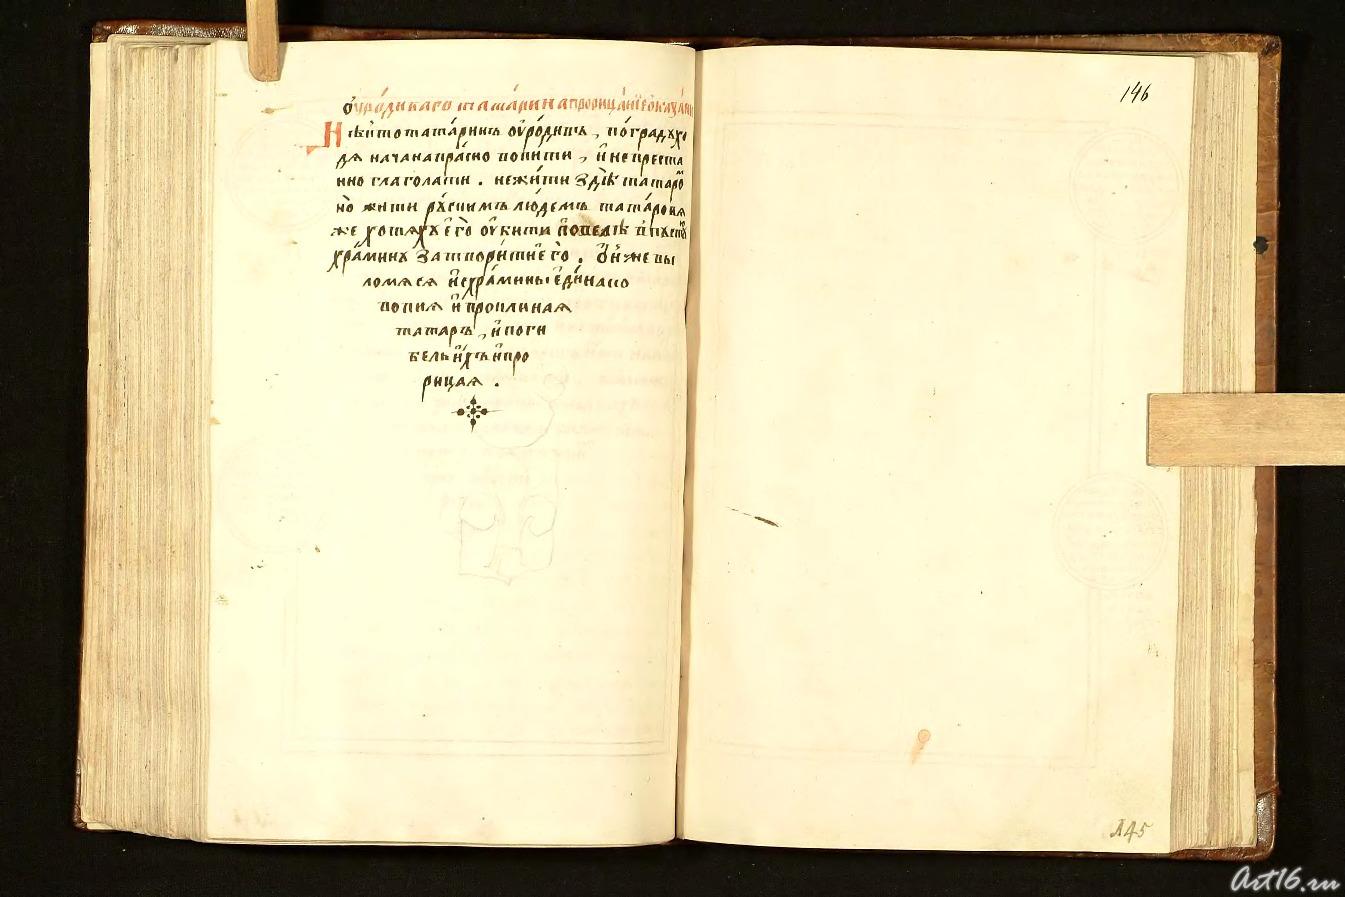 оуродиваго татарина прорицаніе о казани
Нѣкто татаринъ оуродивъ, по граду хо
дя нача напрасно вопити, и непреста
нно глаголати. не жити здѣ татаро
но жити рускимъ людемъ татарове
же хотяху его оубити и повелѣ в пустѣ
храмину затворити его. Он же вы
ломяся ис храмины единако
вопия и проклиная
татаръ, и поги
бель ихъ и про
рицая.
146
145
Art16.ru